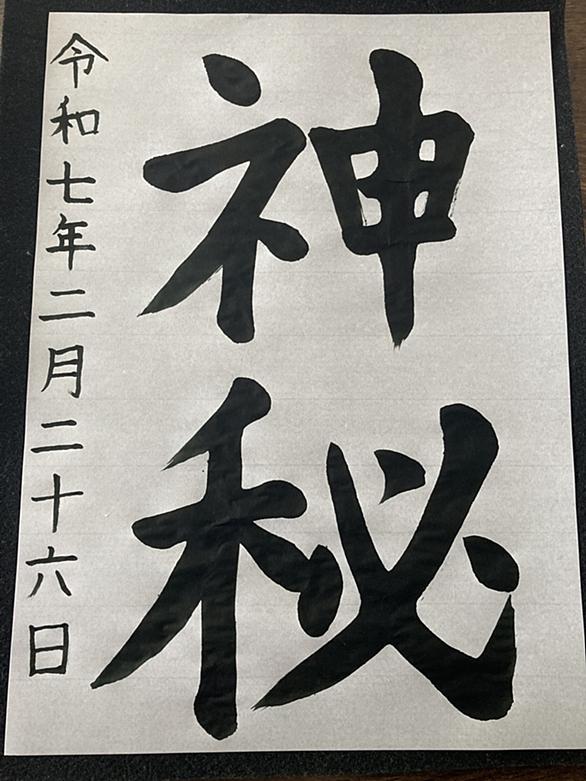 神秘
令和七年二月二十六日